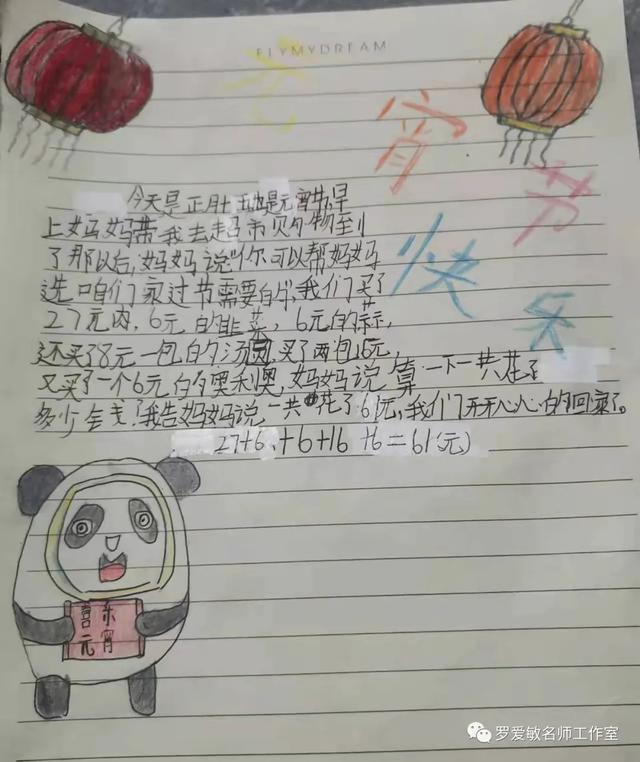 FLYMYDREAM
元宵节快乐
今天是正月十五也是元宵节,早
上妈妈带我去超市购物到
了那以后,妈妈说"你可以帮妈妈
选咱们家过节需要的",我们买了
27元肉,6元的韭菜,6元的蒜,
还买了8元一包的汤圆,买了两包16元,
又买了一个6元的奥利奥,妈妈说算一下一共花了
多少钱?我告妈妈说一共花了61元,我们开开心心的回家了。
27+6+6+16+6=61(元)
喜乐
元宵
罗爱敏名师工作室